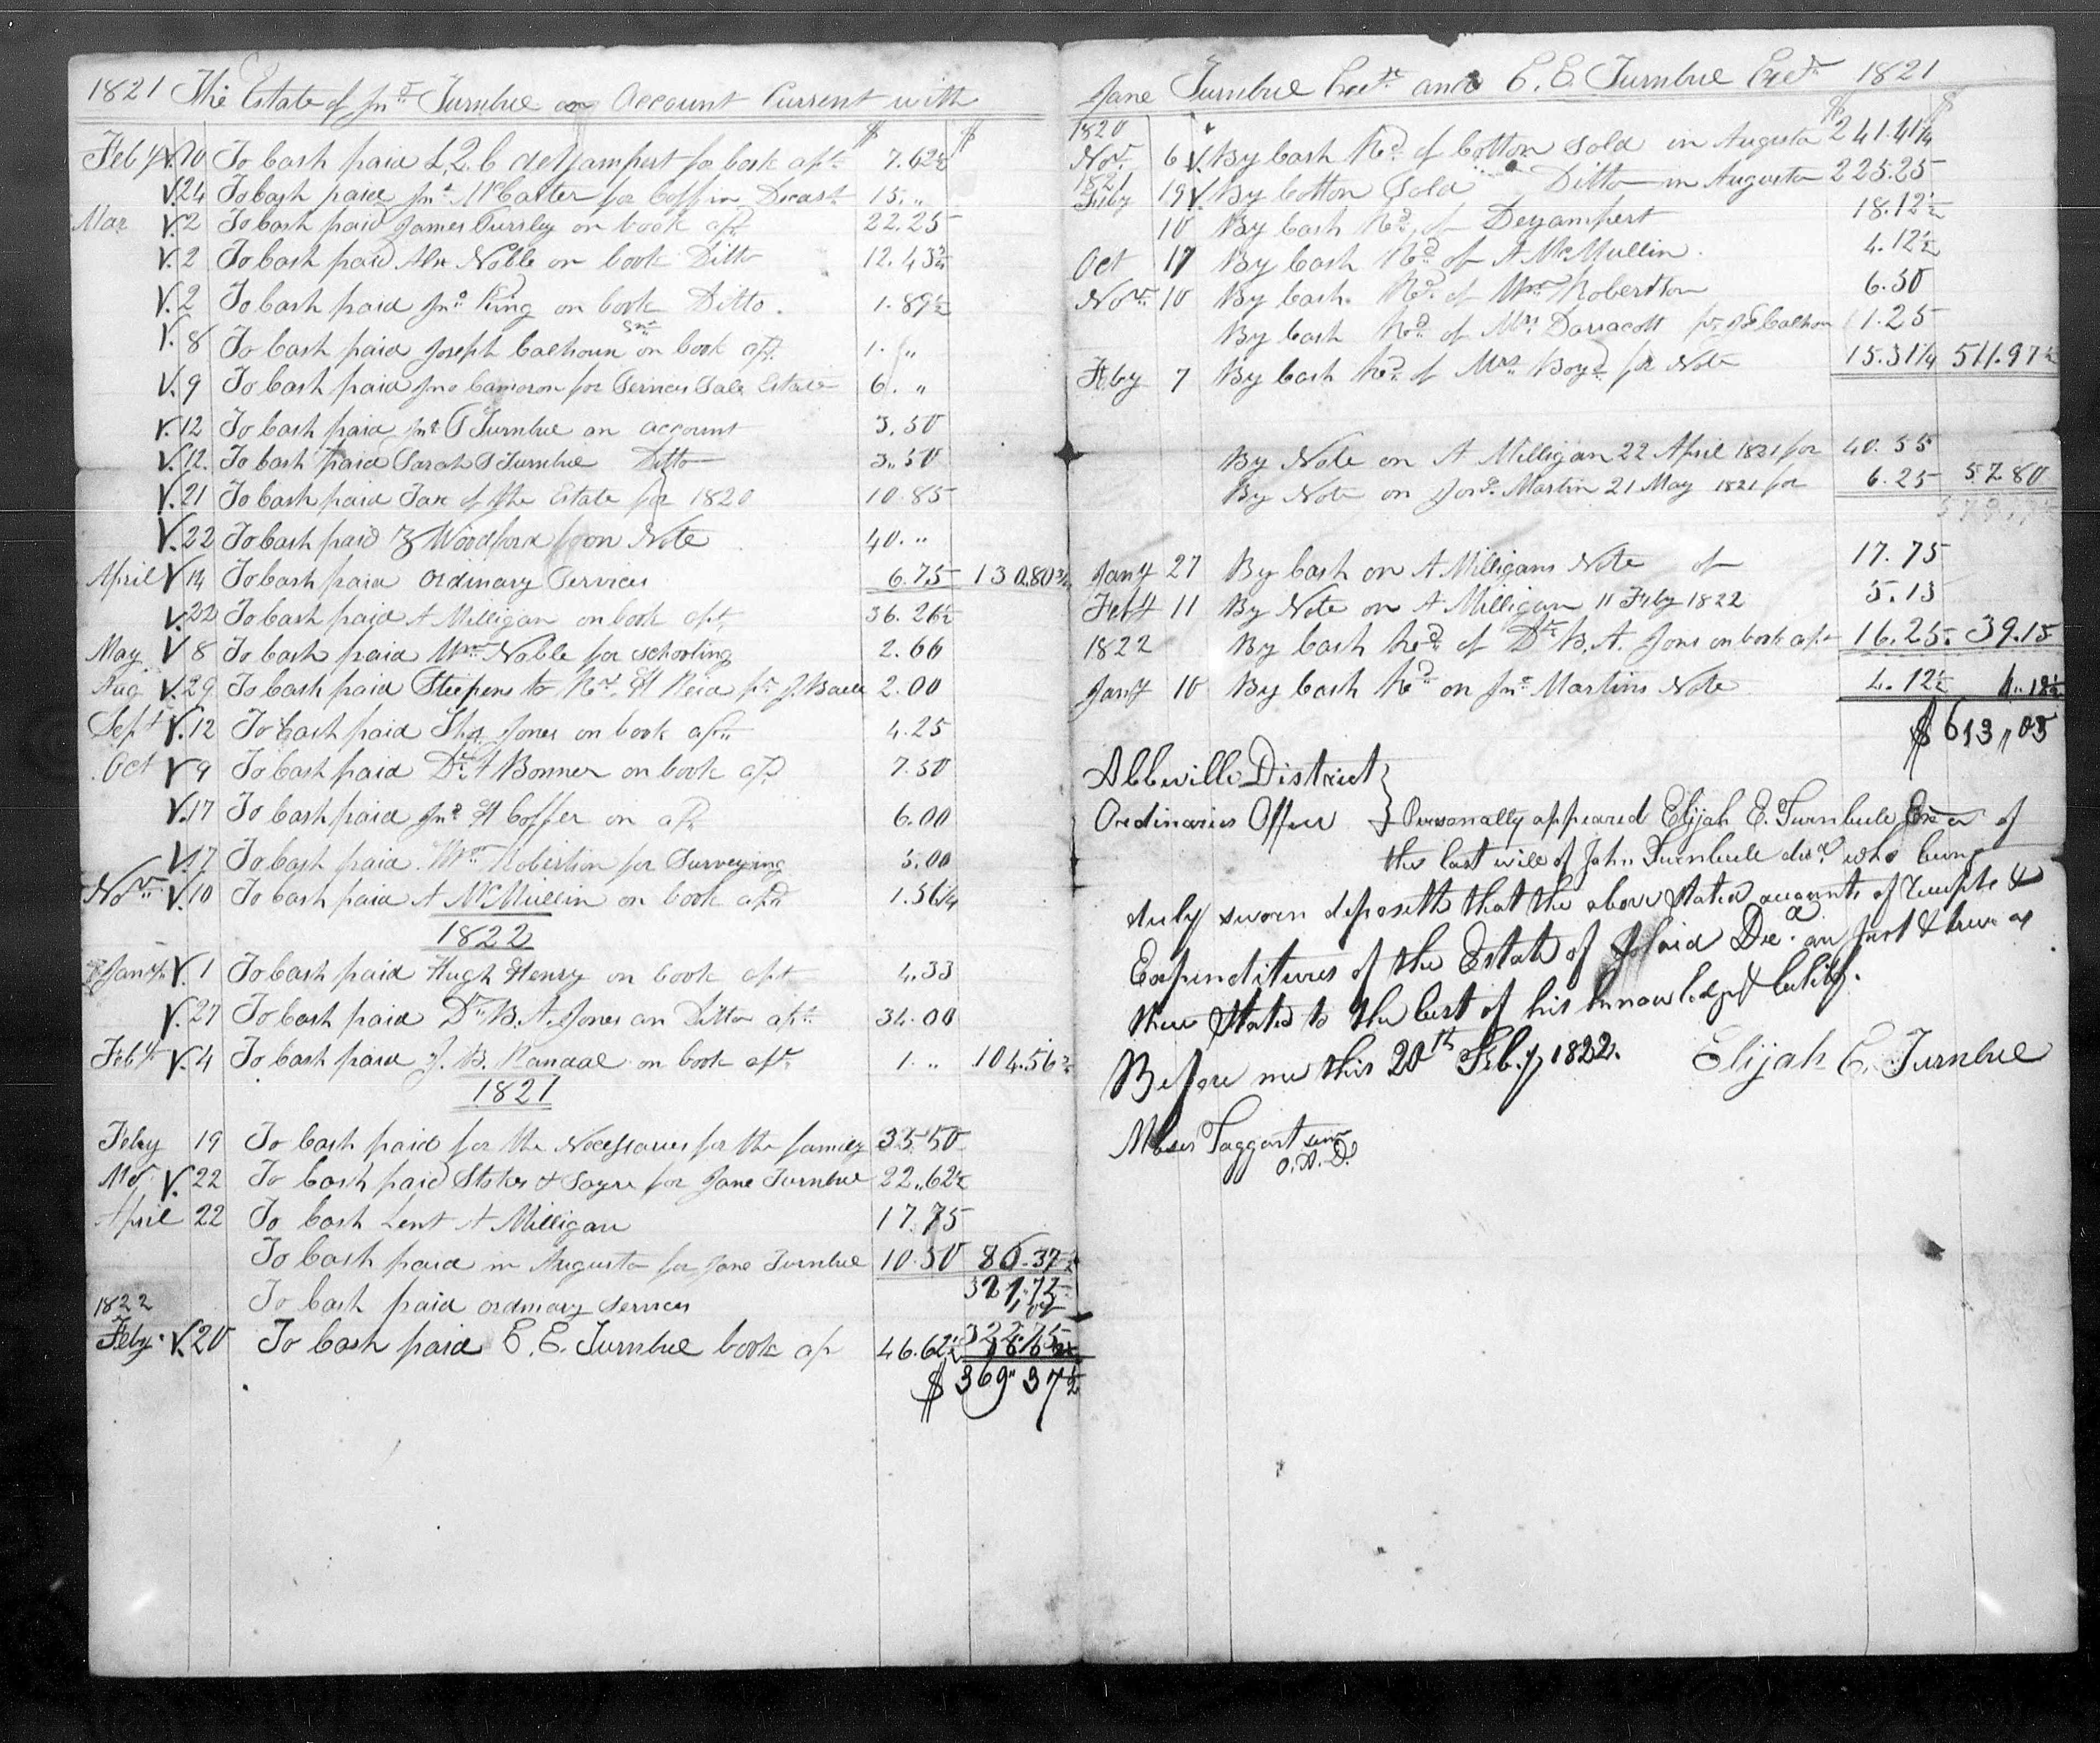 1821 The Estate of Jno. Turnbul in Account Current with
$ $
Feby V. 10 To Cash paid L, Q. C deYampert for book apt. 7.62½
V. 24 To Cash paid Jno. McCarter for Coffin Deceast 15. „
Mar V. 2 To Cash paid James Pursley on book apt 22.25
V. 2 To Cash paid Alx Noble on book Ditto 12.43¾
V. 2 To Cash paid Jno. King on book Ditto. 1.89½
V. 8 To Cash paid Joseph Calhoun Snr. on book apt. 1. „
V. 9 To Cash paid Jno Cameron for Services Sale Estate 6. „
V. 12 To Cash paid Jno. T Turnbul on account 3.50
V. 12. To Cash paid Sarah T Turnbul Ditto 3.50
V. 21 To Cash paid Tax of the Estate for 1820 10.85
V. 22 To Cash paid Z Woodford on Note 40. „
April V 14 To Cash paid Ordinary Services 6.75 130.80¾
V. 22 To Cash paid A Milligan on book apt. 36.26½
May V 8 To Cash paid Wm. Noble for schooling 2.66
Aug V. 29 To Cash paid Steepens to Rev. H Reid 2.00
Sept V. 12 To Cash paid Thos Jones on book apt. 4.25
Oct V 9 To Cash paid Dr. A Bonner on book apt 7.50
V. 17 To Cash paid Jno. H Coffer on apt 6.00
V. 17 To Cash paid Wm. Robertson for Surveying 5.00
Novr. V. 10 To Cash paid A McMullin on book apt 1.56¼
1822
Jany. V. 1 To Cash paid Hugh Henry on book apt 4.33
V. 27 To Cash paid Dr. B. A. Jones on Ditto apt. 34.00
Feby V. 4 To Cash paid J. B. Randal on book apt. 1. „ 104.56¾
1821
Feby 19 To Cash paid for the Necessaries for the family 35.50
V. 22 To Cash paid Stokes & Sayre for Jane Turnbul 22„62½
April 22 To Cash Lent A Milligan 17.75
To Cash paid in Augusta for Jane Turnbul 10.50 86.37½
321,75
1822 To Cash paid ordinary services 1,00
322.75
Feby. V. 20 To Cash paid E. E. Turnbul book ap 46.62½
$ 369„37½
Jane Turnbul Exetr. and E. E. Turnbul Exetr. 1821
$ $
1820
Novr. 6 V. By Cash Recd. of Cotton Sold in Augusta 241.41¼
1821
Feby 19 V. By Cotton Sold Ditto in Augusta 225.25
10 By Cash Recd. of Deyampert 18.12½
Oct 17 By Cash Recd. of A McMullin. 4.12½
Novr. 10 By Cash Recd. of Wm Robertson 6.50
By Cash Recd. of Mrs. Darracott Calhoun 1.25
Feby 7 By Cash Recd. of Wm. Boyd for Note 15.31¼ 511.97½
By Note on A Milligan 22 April 1821 for 40.55
By Note on Martin 21 May 1821 for 6.25 57.80
Jany 27 By Cash on A Milligans Note of 17.75
Feby 11 By Note on A Milligan 11 Feby 1822 5.15
1822 By Cash Recd. of Dr. B. A. Jones on book apt 16.25. 39.15
Jany 10 By Cash Recd. on Jno. Martins Note 4.12½ 4„12½
$ 613„05
Abbeville District }
Ordinaries Office } Personally appeared Elijah E. Turnbull Exer of
the last will of John Turnbull decd. who being
duly sworn deposeth that the above stated accounts of receipts &
Expenditures of the Estate of said Decd. are just & true as
there Stated to the best of his knowledge & belief.
Before me this 20th Feby 1822. Elijah E. Turnbul
Moses Taggart senr
O. A. D.